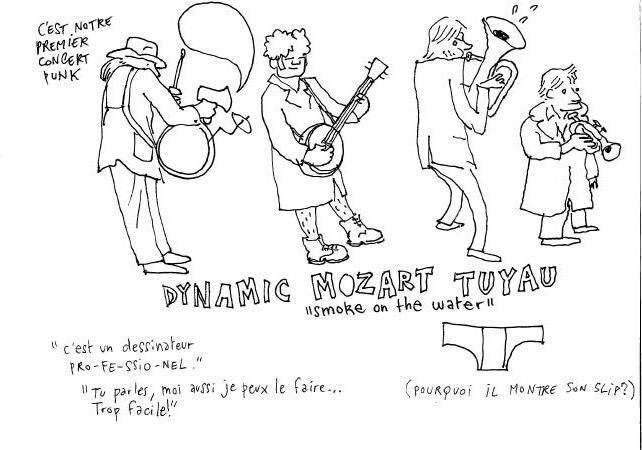 C'EST NOTRE
PREMIER
CONCERT
PUNK
DYNAMIC MOZART TUYAU
"smoke on the water"
"c'est un dessinateur
PRO-FE-SSIO-NEL."
"Tu parles, moi aussi je peux le faire...
Trop facile!"
(POURQUOI IL MONTRE SON SLIP?)